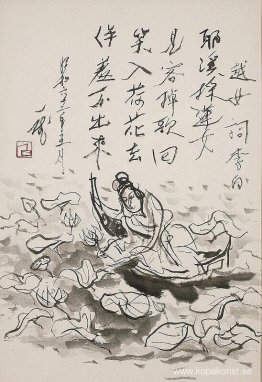 越女詞 李白
耶溪採蓮女
見客棹歌回
笑入荷花去
佯羞不出來
www.kopakonst.se